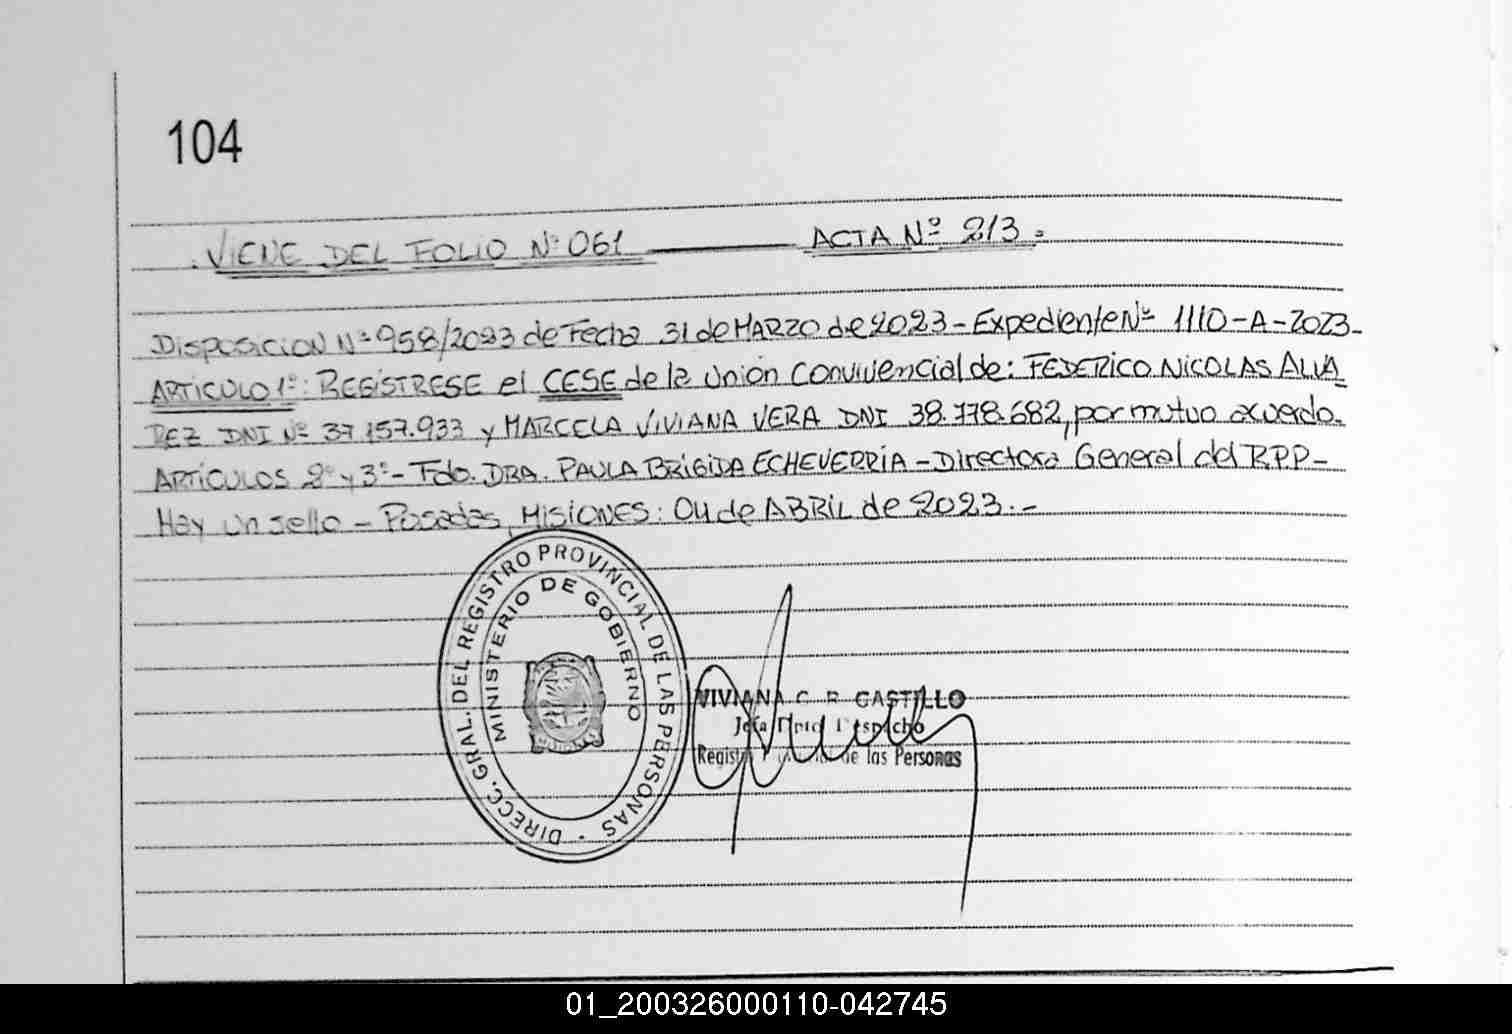 104
VIENE DEL FOLIO Nº 061 ACTA Nº 213.
DISPOSICION Nº 958/2023 de Fecha 31 de MARZO de 2023 - Expediente Nº 1110-A-2023-
ARTICULO 1º: REGISTRESE el CESE de la Unión Convivencial de: FEDERICO NICOLAS ALVA
REZ DNI Nº 37.157.933 y MARCELA VIVIANA VERA DNI 38.778.682, por mutuo acuerdo.
ARTÍCULOS 2º y 3º - Fdo. DRA. PAULA BRIGIDA ECHEVERRÍA - Directora General del R.P.P -
Hay un sello - Posadas, MISIONES: 04 de ABRIL de 2023.-
DIRECC. GRAL. DEL REGISTRO PROVINCIAL DE LAS PERSONAS
MINISTERIO DE GOBIERNO
VIVIANA C. R. CASTILLO
Jefa Despacho
de las Personas
01_200326000110-042745